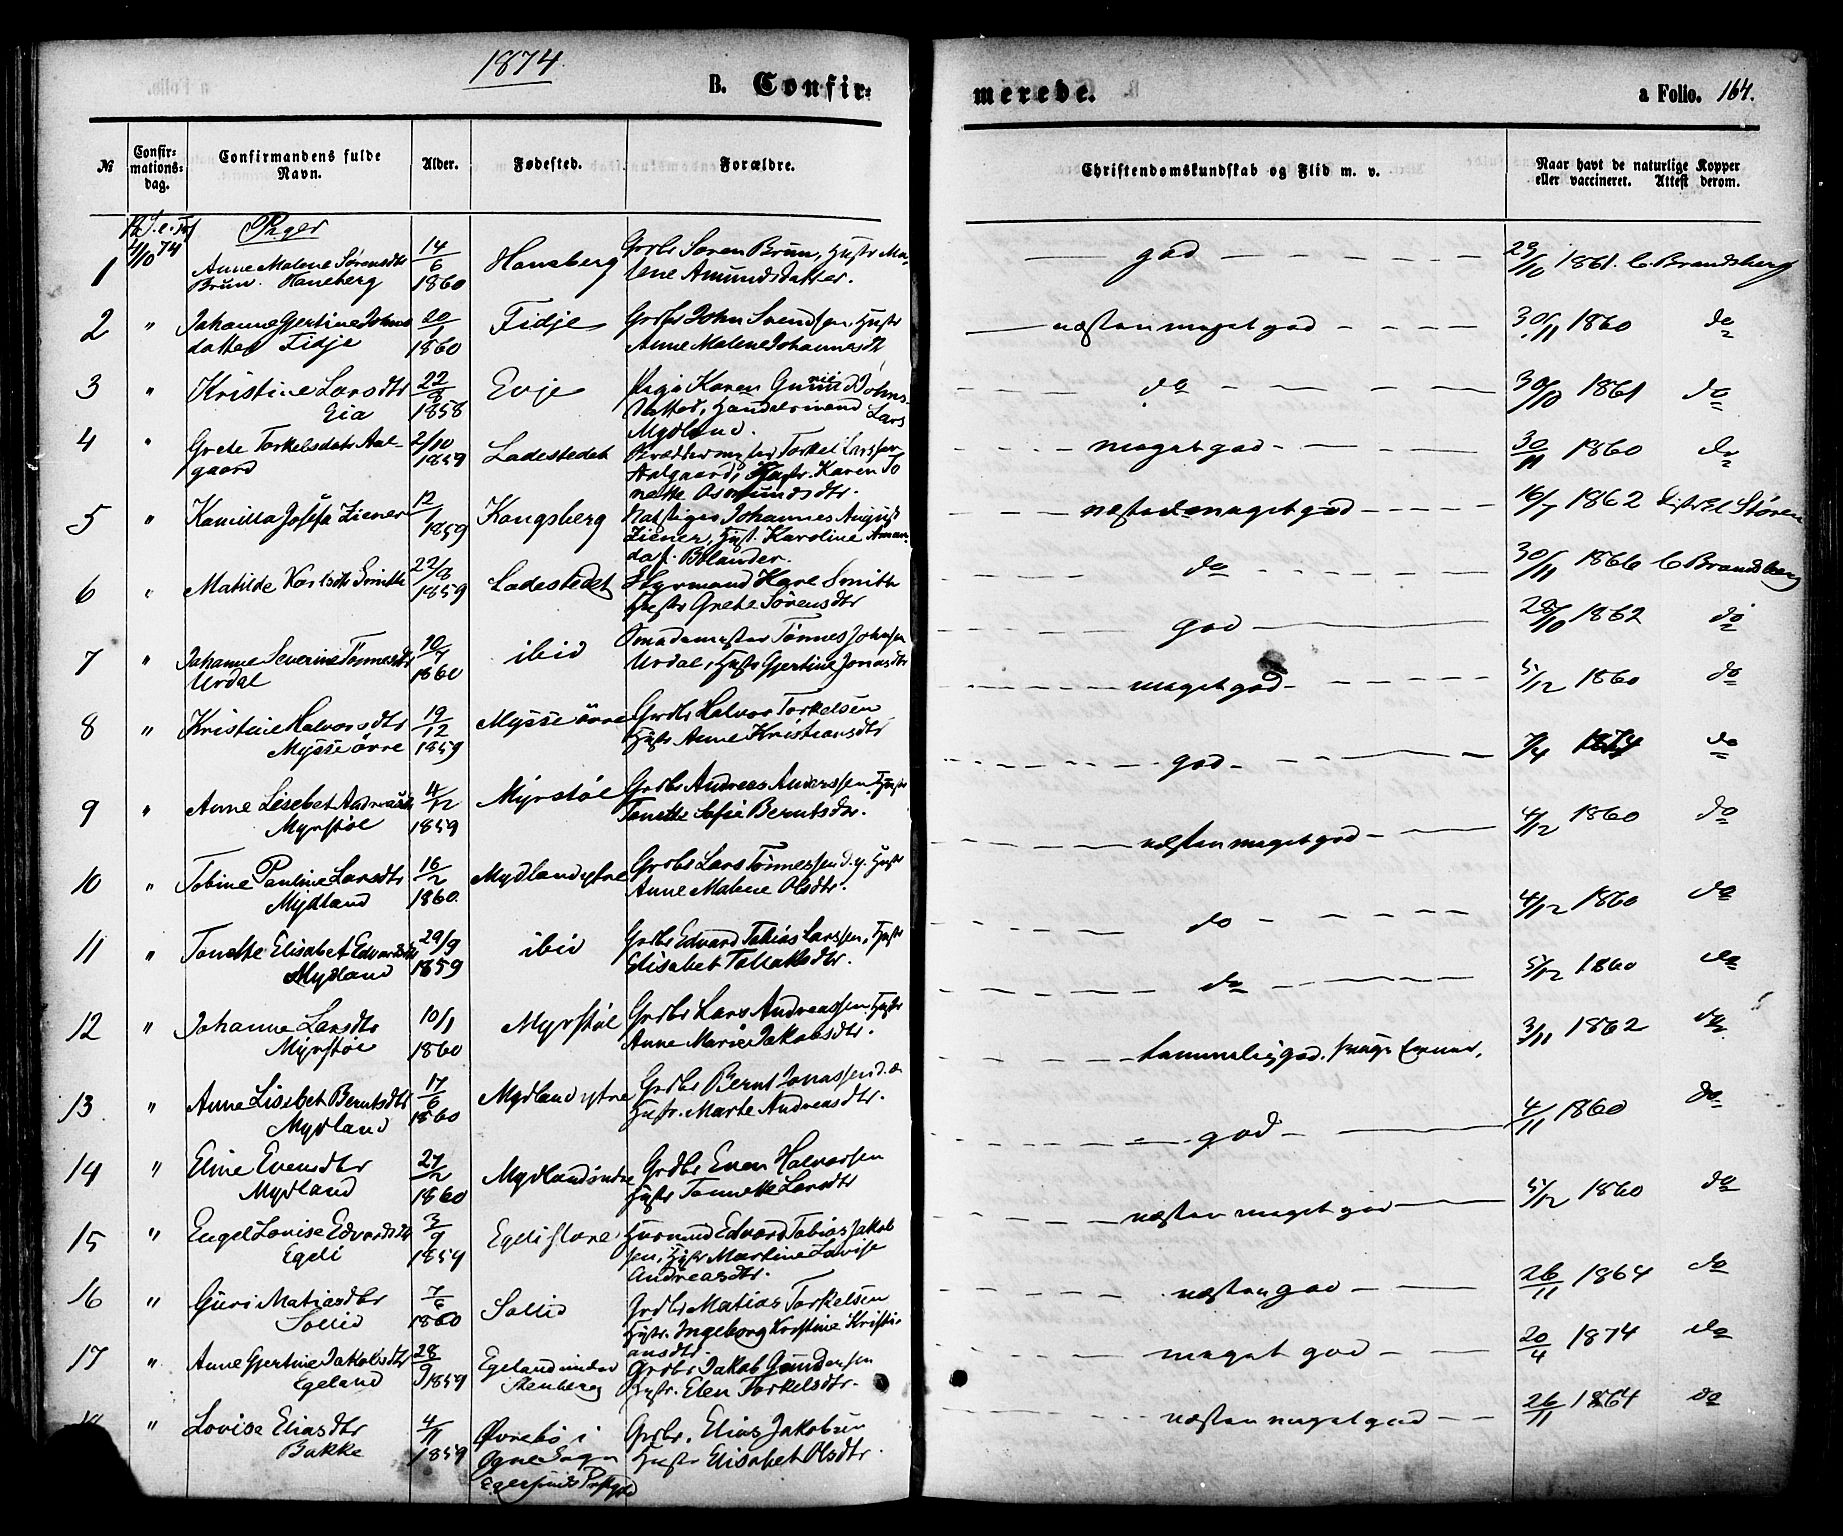 1874.
B. Confir-
merede.
a Folio. 164.
№
Confir-
mations-
dag.
Confirmandens fulde
Navn.
Alder.
Fødested.
Forældre.
Christendomskundskab og Flid m. v.
Naar havt de naturlige Kopper
eller vaccineret. Attest derom.
Piger
1
4/10 74
Anne Malene Sørensdtr
Brun. Haneberg
14/6
1860
Haneberg
Grdbr Søren Brun, Hustr Ma-
lene Amundsdatter.
god
29/10 1861. C. Brandsberg
2
"
Johanne Gjertine Johns
datter Fidje
20/1
1860
Fidje
Grdbr John Svendsen, Hustr
Anne Malene Johannesdt
næsten meget god
30/11 1860 do
3
"
Kristine Larsdtr
Eia
22/8
1858
Evje
Pige Karen Johns-
datter, Handelsmand Lars
Mydland.
do
30/10 1861 do
4
"
Grete Torkelsdatr Aal-
gaard
2/10
1859
Ladestedet
Torkel Larssen
Aalgaard, Hustr. Karen To
nette Osmundsdtr.
meget god
30/11 1860 do
5
"
Kamilla Josefa Ziener
12/1
1859
Kongsberg
Johannes August
Ziener, Hust. Karoline Aman-
da f. Bolander.
næsten meget god
16/7 1862 Støren
6
"
Matilde Karlsdtr Smith
22/8
1859
Ladestedet
Styrmand Kare Smith
Hustr Grete Sørensdtr
do
30/11 1866 C Brandsberg
7
"
Johanne Severine Tønnesdtr
Urdal
10/7
1860
ibid
Smedemester Tønnes Johnsen
Urdal, Hustr Gjertine Jonasdtr
god
28/10 1862 do
8
"
Kristine Halvorsdtr
Mysse øvre
19/12
1859
Mysse øvre
Grdbr Halvor Torkelsen
Hustr Anne Kristiansdtr
meget god
5/12 1860 do
9
"
Anne Lisebet Andreasdtr
Myrstøl
4/12
1859
Myrstøl
Grdbr Andreas Anderssen, Hustr
Tonette Sofie Berntsdtr.
god
7/4 1874 do
10
"
Tobine Pauline Larsdtr
Mydland
16/2
1860.
Mydland ytre
Grdbr Lars Tønnessen d. y. Hustr
Anne Malene Olsdtr.
næsten meget god
4/12 1860 do
11
"
Tonette Elisabet Edvardsdtr
Mydland
29/9
1859
ibid
Grdbr Edvard Tobias Larssen, Hustr
Elisabet Tollaksdtr.
do
4/12 1860 do
12
"
Johanne Larsdtr
Myrstøl
10/1
1860
Myrstøl
Grdbr Lars Andreassen Hustr
Anne Marie Jakobsdtr.
do
5/12 1860 do
13
"
Anne Lisebet Berntsdtr
Mydland
17/6
1860
Mydland ytre
Grdbr Bernt Jonassen d. æ
Hustr. Marte Andreasdtr.
temmelig god, svage Evner.
3/11 1862 do
14
"
Eline Evensdtr
Mydland
27/2
1860
Mydland indre
Grdbr Even Halvorsen
Hustr Tonnette Larsdtr
god
4/11 1860 do
15
"
Engel Lovise Edvardsdtr
Egeli
3/9
1859
Egeli store
Husmand Edvard Tobias Jakob
sen, Hustr Martine Lovise
Andreasdtr.
næsten meget god
5/12 1860 do
16
"
Guri Matiasdtr
Sollid
7/6
1860
Sollid
Grdbr Matias Torkelsen
Hustr. Ingeborg Kristine Kristi-
ansdtr.
næsten god
26/11 1864 do
17
"
Anne Gjertine Jakobsdtr
Egeland
28/9 1859
Egeland under
Stenberg
Grdbr Jakob Gundersen
Hustr. Elen Torkelsdtr.
meget god
20/4 1874 do
"
Lovise Eliasdtr
Bakke
4/11
1859
Øvrebø i
Ogne Sogn
Egersunds Prstgjld
Grdbr. Elias Jakobsen
Hustr Elisabet Olsdtr.
næsten meget god
26/11 1864 do